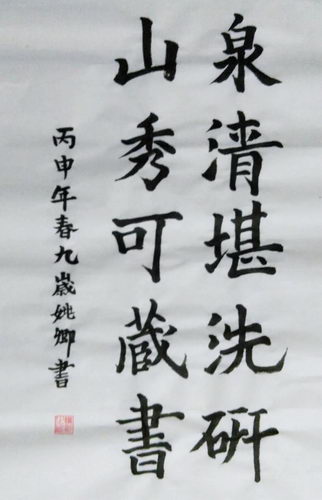 泉清堪洗研
山秀可蔵書
丙申年春九歲姚卿書